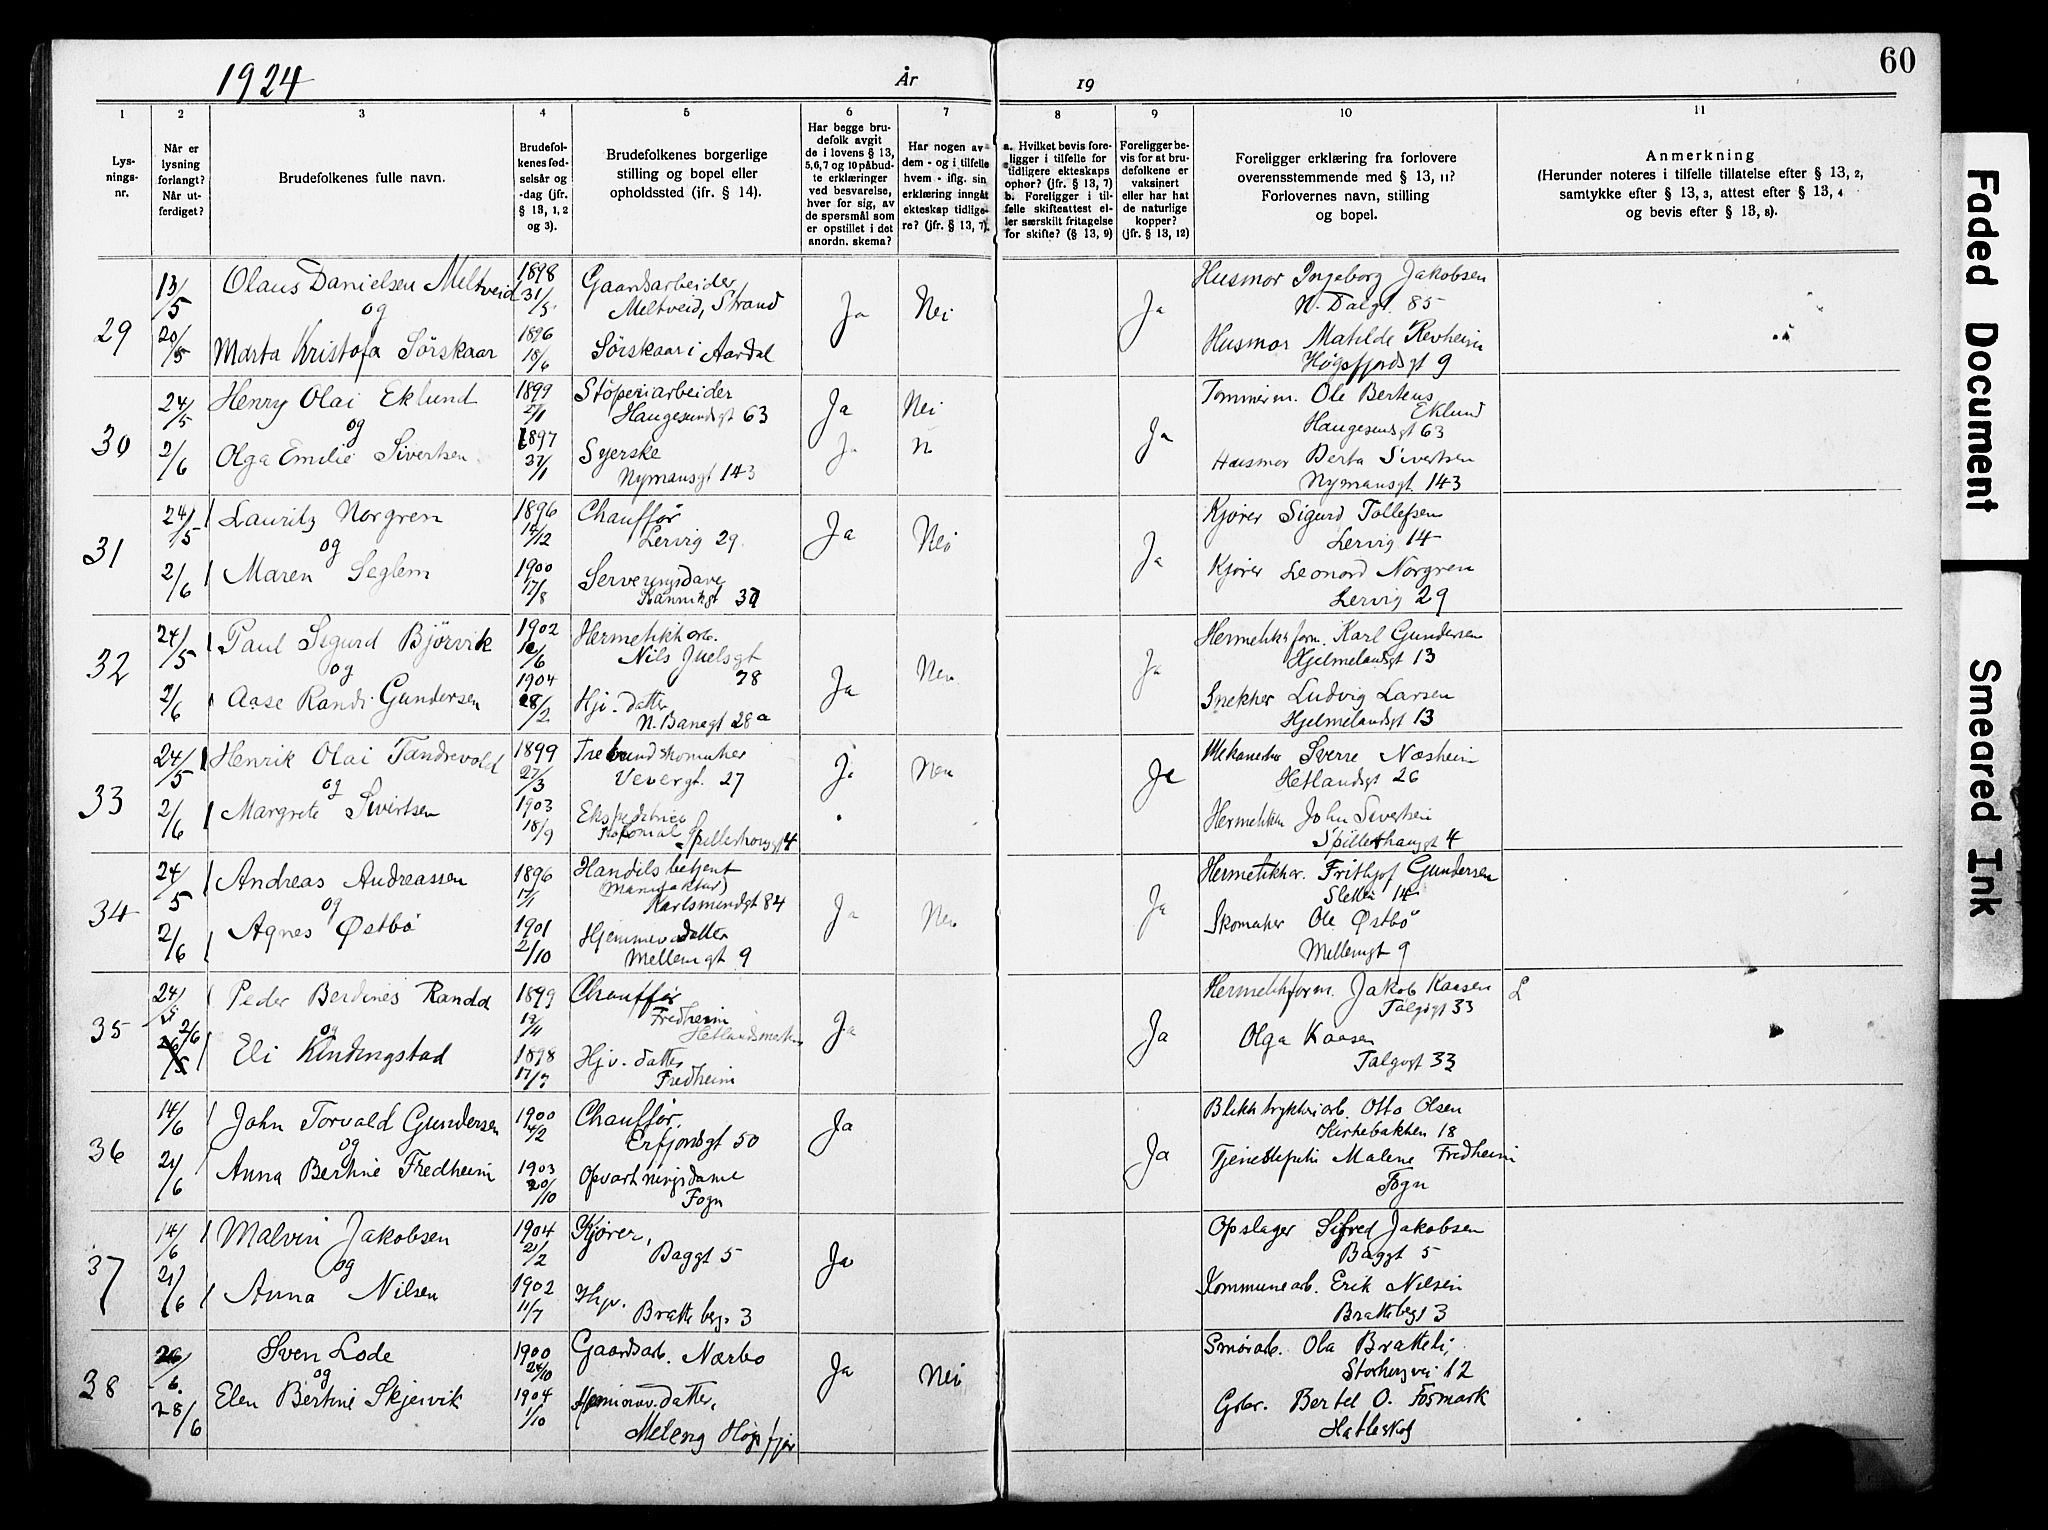 1924
År
19
60
1
2
3
4
5
6
7
8
9
10
11
Lys-
nings-
nr.
Når er
lysning
forlangt?
Når ut-
ferdiget?
Brudefolkenes fulle navn.
Brudefol-
kenes fød-
selsår og
-dag (jfr.
§ 13, 1, 2
og 3).
Brudefolkenes borgerlige
stilling og bopel eller
opholdssted (ifr. § 14).
Har begge bru-
defolk avgit
de i lovens § 13,
5,6,7 og 10 påbud-
te erklæringer
ved besvarelse,
hver for sig, av
de spørsmål som
er opstillet i det
anordn. skema?
Har nogen av
dem - og i tilfelle
hvem - iflg. sin
erklæring inngåt
ekteskap tidlige-
re? (jfr. § 13, 7).
a. Hvilket bevis fore-
ligger i tilfelle for
tidligere ekteskaps
ophør? (jfr. § 13, 7)
b. Foreligger i til-
felle skifteattest el-
ler særskilt fritagelse
for skifte? (§ 13, 9)
Foreligger be-
vis for at bru-
defolkene er
vaksinert
eller har hat
de naturlige
kopper?
(jfr. § 13, 12)
Foreligger erklæring fra forlovere
overensstemmende med § 13, 11?
Forlovernes navn, stilling
og bopel.
Anmerkning
(Herunder noteres i tilfelle tillatelse efter § 13, 2,
samtykke efter § 13, 3, attest efter § 13, 4
og bevis efter § 13, 8).
29
13/5
20/5
Olaus Danielsen Meltveid
og
Marta Kristofa Sörskaar
1898
31/5
1896
18/6
Gaardsarbeider
Meltveid, Strand
Sörskaar i Aardal
Ja
Nei
Ja
Husmor Ingeborg Jakobsen
N. Dalgt. 85
Husmor Matilde Revheim
Høgsfjordsgt 9
30
24/5
2/6
Henry Olai Eklund
og
Olga Emilie Sivertsen
1899
1897
Støperiarbeider
Haugesundsgt 63
Syerske
Nymansgt 143
Ja
Ja
Nei
N
Ja
Tømmerm. Ole Berteus
Eklund
Haugesundsgt 63
Husmor Berta Sivertsen
Nymansgt. 143
31
24/5
2/6
Lauritz Norgren
og
Maren Seglem
1896
14/12
1900
17/8
Chauffør
Lervig 29
Serveringsdame
Kannikgt
Ja
Nei
Ja
Kjører Sigurd Tollefsen
Lervig 14
Kjører Leonard Norgren
Lervig 29
32
24/5
2/6
Paul Sigurd Bjørvik
og
Aase Randi Gundersen
1902
1904
28/2
Hermetikkarb.
Nils Juelsgt
78
Hjv. datter
N. Banegt 28a
Ja
Nei
Ja
Hermetikkform. Karl Gundersen
Hjelmelandsgt 13
Snekker Ludvig Larsen
Hjelmelandsgt 13
33
24/5
2/6
Henrik Olai Tandrevold
og
Margrete Sivertsen
1899
27/3
1903
18/9
Trebundskomaker
Vevergt. 27
Kolonial
Ja
Nei
Ja
Mekaniker Sverre Næsheim
Hetlandsgt 26
John Sivertsen
Spillerhaugt 4
34
24/5
2/6
Andreas Andreassen
og
Agnes Østbö
1896
17/1
1901
2/10
Handelsbetjent
(Manufaktur)
Karlsmindgt 84
Hjemmev. datter
Mellemgt 9
Ja
Nei
Ja
Hermetikkar. Frithjof Gundersen
Sletten 14
Skomaker Ole Østbö
Mellemgt 9
35
24/5
2/6
Peder Berdines Randa
og
Eli Kindingstad
1899
1898
17/7
Chauffør
Fredheim
Hetlandsmarken
Hjv. datter
Fredheim
Ja
Ja
Hermetikkform. Jakob Kaasen
Talgøgt 33
L
Olga Kaasen
Talgøgt 33
36
14/6
21/6
John Torvald Gundersen
og
Anna Bertine Fredheim
1900
4/2
1903
20/10
Chauffør.
Erfjordsgt 50
Opvartningsdame
Fogn
Ja
Ja
Blikktrykkeriarb. Otto Olsen
Kirkebakken 18
Tjenestepike Malene Fredheim
Fogn
37
14/6
21/6
Malvin Jakobsen
og
Anna Nilsen
1904
21/2
1902
11/7
Kjører,
Baggt 5
Hjv.
Bratteberg. 3
Ja
Opslager Sifred Jakobsen
Baggt 5
Kommunearb. Erik Nilsen
Brattebergt 3
38
26/6.
28/6
Sven Lode
og
Elen Bertine Skjeivik
1900
24/10
1904
1/10
Gaardsarb. Nærbo
Meleng Høgsfjor
Ja
Nei
Smørarb. Ola Bratteli,
Storhaugvei 12
Gbr. Bertel O. Fosmark
Hatleskog
Faded Document
Smeared Ink